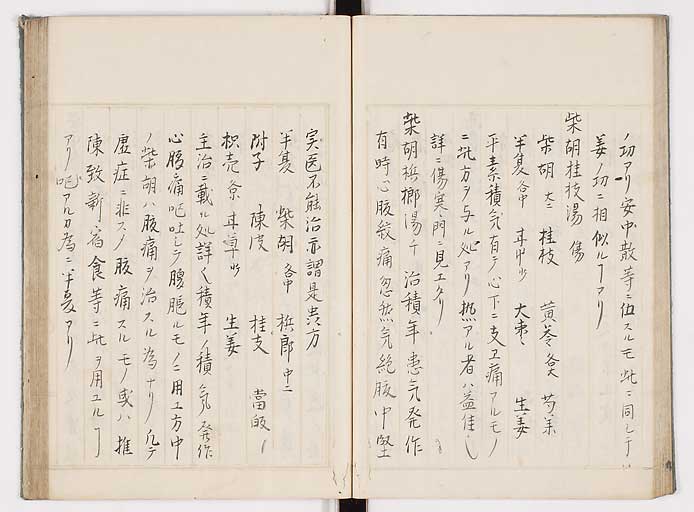 ノ功アリ安中散等ニ伍スルモ此ニ同シテ
姜ノ功ニ相似ルヿアリ
柴胡桂枝湯 傷
柴胡 大 桂枝 黄芩 芍薬
半夏 各中 甘中 大棗 生姜
平素積気有テ心下ニ支ヱ痛アルモノ
ニ此方ヲ与ル処アリ熱アル者ハ益佳シ
詳ニ傷寒門ニ見エタリ
柴胡梹榔湯 千 治積年患気発作
有時心腹絞痛忽然気絶腹中堅
実医不能治亦謂是貴方
半夏 柴胡 各中 梹榔 中
附子 陳皮 桂支 當皈
枳壳 甘草 小 生姜
主治ニ載ル処詳く積年ノ積気発作
心腹痛嘔吐シテ腹脹ルモノニ用ユ方中
ノ柴胡ハ腹痛ヲ治スル為ナリ凡テ
虚症ニ非スノ腹痛スルモノ或ハ推
陳致新宿食等ニ此ヲ用ユルヿ
アリ嘔アルカ為ニ半夏アリ